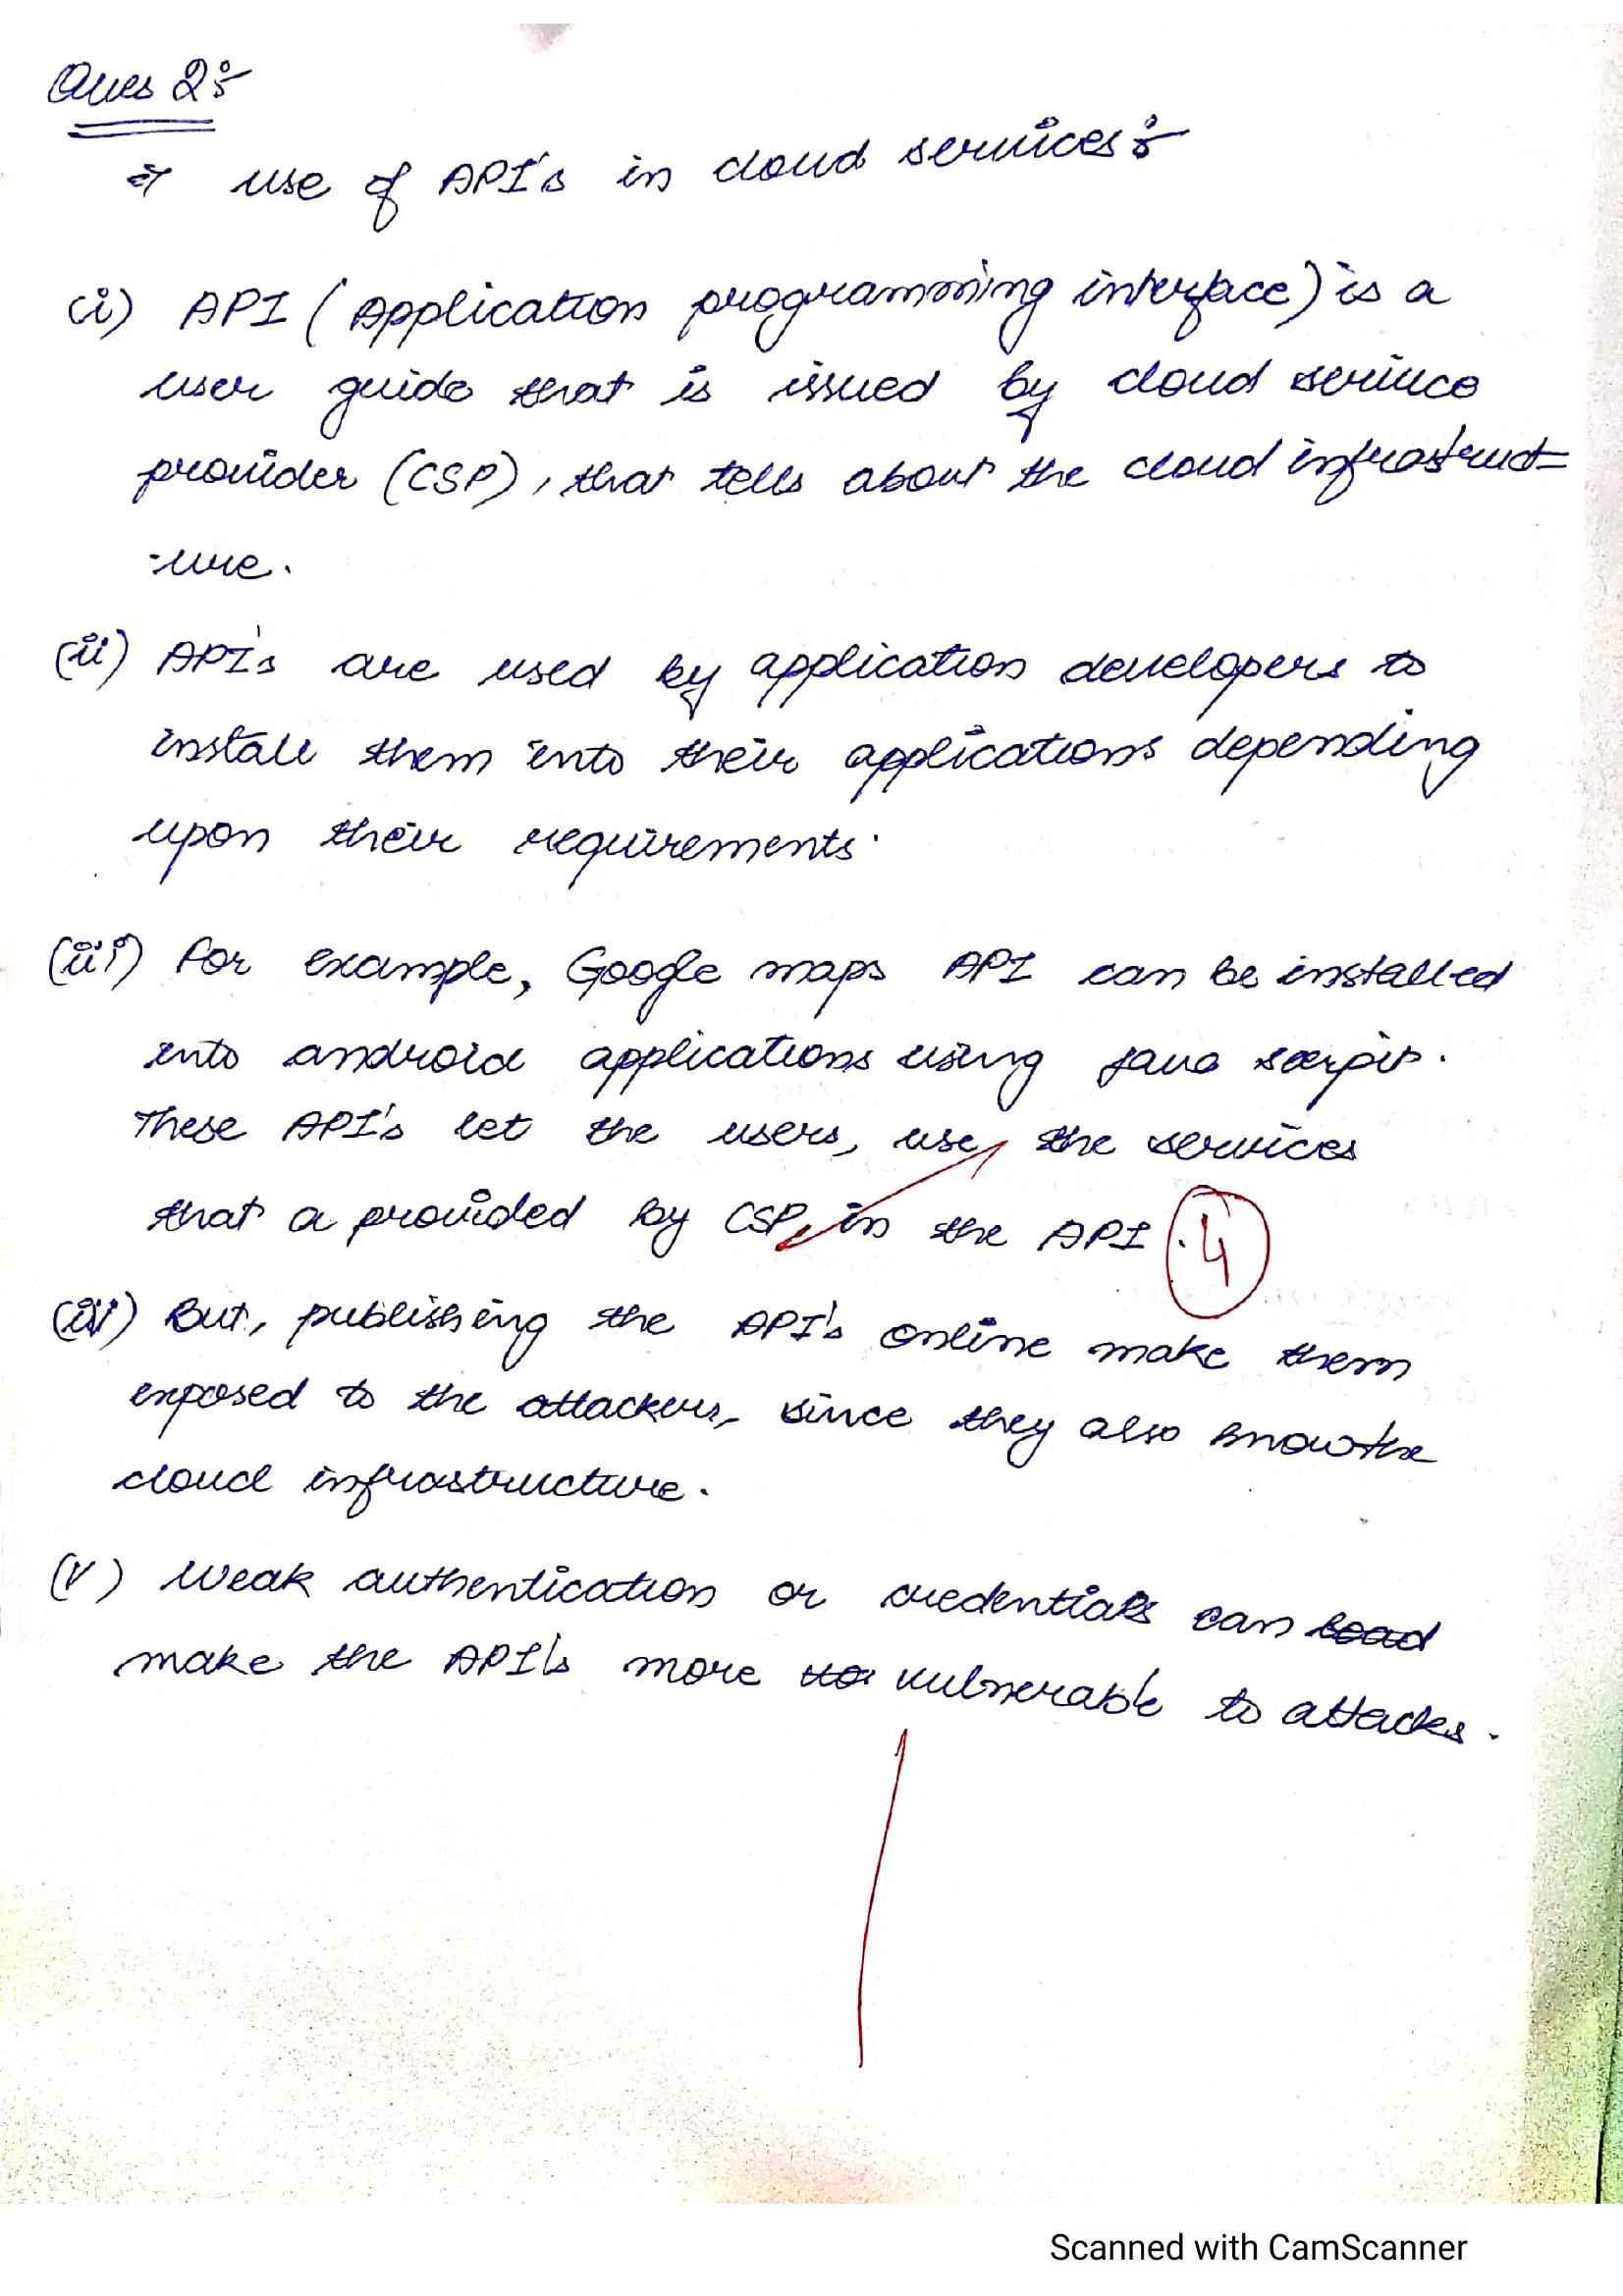 Ques 2:-
→ use of API's in cloud services:-
(i) API (Application programming interface) is a
user guide that is issued by cloud service
provider (CSP), that tells about the cloud infrastruct-
-ure.
(ii) API's are used by application developers to
install them into their applications depending
upon their requirements.
(iii) For example, Google maps API can be installed
into android applications using java
These API's let the users, use the services
that a provided by CSP, in the API.
4
(iv) But, publishing the API's online make them
exposed to the attackers, since they also know the
cloud infrastructure.
(V) Weak authentication or credentials can
make the API's more vulnerable to attacks.
Scanned with CamScanner